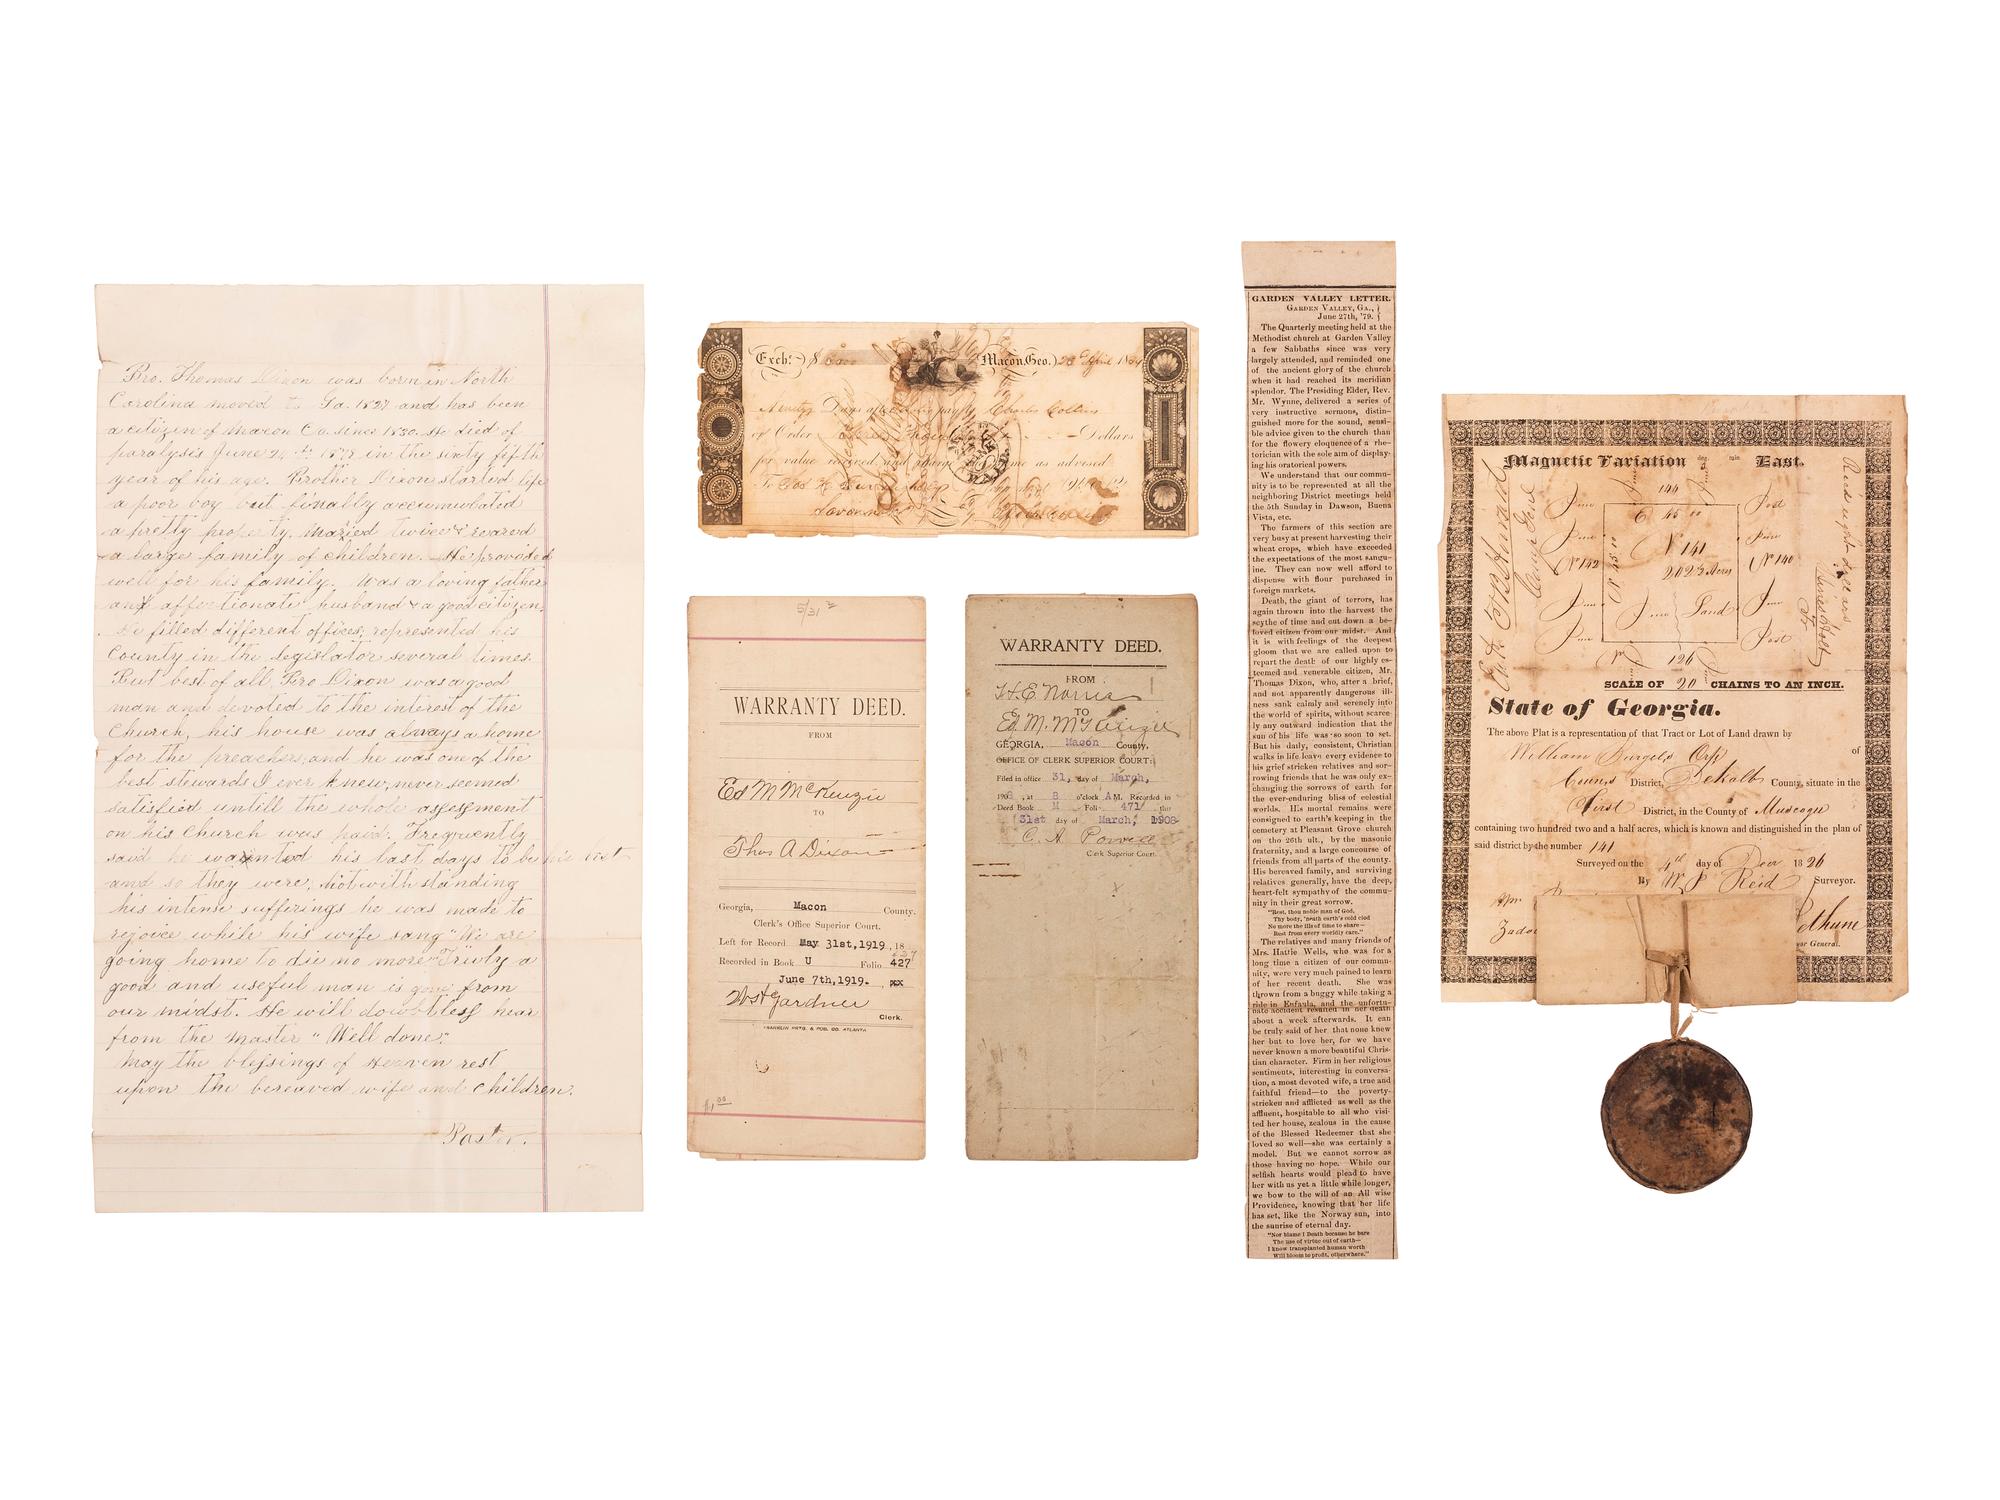 Bro. Thomas Dixon was born in North
Carolina moved to Ga. 1827 and has been
a citizen of Macon Co. since 1830. He died of
paralysis June 24th 1879 in the sixty fifth
year of his age. Brother Dixon started life
a poor boy but finally accumulated
a pretty property. Maried twice & reared
a large family of children. He provided
well for his family. Was a loving father
and affectionate husband & a good citizen,
He filled different offices; represented his
County in the legislator several times.
But best of all, Bro Dixon was a good
man and devoted to the interest of the
Church, his house was always a home
for the preachers, and he was one of the
best stewards I ever knew, never seemed
satisfied untill the whole assessment
on his Church was paid. Freqwently
said he wanted his last days to be his best
and so they were; notwith standing
his intense sufferings he was made to
rejoice while his wife sang "We are
going home to die no more" Truly a
good and useful man is gone from
our midst. He will doubtless hear
from the master "Well done",
May the blessings of Heaven rest
upon the bereaved wife and children.
Pastor.
Exch: $ Macon, Geo. 23d April 18
Ninety Days after date pay to Charles Collins
or Order Dollars
for value received and charge the same as advised
To
Savannah
5/31
WARRANTY DEED.
FROM
Ed M McKenzie
TO
Thos A Dixon
Georgia, Macon County.
Clerk's Office Superior Court.
Left for Record May 31st, 1919, 18
Recorded in Book U Folio 427
June 7th, 1919. xx
Gardner
Clerk.
FRANKLIN PRTG. & PUB. CO. ATLANTA
$1.00
WARRANTY DEED.
FROM
H. E. Norris
TO
Ed M. McKenzie
GEORGIA, Macon County.
OFFICE OF CLERK SUPERIOR COURT:
Filed in office 31, day of March,
1908, at 8 o'clock A M. Recorded in
Deed Book M Foli 471 this
31st day of March, 1908
C. A Powell
Clerk Superior Court.
GARDEN VALLEY LETTER.
GARDEN VALLEY, GA.,
June 27th, '79.
The Quarterly meeting held at the
Methodist church at Garden Valley
a few Sabbaths since was very
largely attended, and reminded one
of the ancient glory of the church
when it had reached its meridian
splendor. The Presiding Elder, Rev.
Mr. Wynne, delivered a series of
very instructive sermons, distin-
guished more for the sound, sensi-
ble advice given to the church than
for the flowery eloquence of a rhe-
torician with the sole aim of display-
ing his oratorical powers.
We understand that our commu-
nity is to be represented at all the
neighboring District meetings held
the 5th Sunday in Dawson, Buena
Vista, etc.
The farmers of this section are
very busy at present harvesting their
wheat crops, which have exceeded
the expectations of the most sangu-
ine. They can now well afford to
dispense with flour purchased in
foreign markets.
Death, the giant of terrors, has
again thrown into the harvest the
scythe of time and cut down a be-
loved citizen from our midst. And
it is with feelings of the deepest
gloom that we are called upon to
repart the death of our highly es-
teemed and venerable citizen, Mr.
Thomas Dixon, who, after a brief,
and not apparently dangerous ill-
ness sank calmly and serenely into
the world of spirits, without scarce-
ly any outward indication that the
sun of his life was so soon to set.
But his daily, consistent, Christian
walks in life leave every evidence to
his grief stricken relatives and sor-
rowing friends that he was only ex-
changing the sorrows of earth for
the ever-enduring bliss of celestial
worlds. His mortal remains were
consigned to earth's keeping in the
cemetery at Pleasant Grove church
on tho 26th ult., by the masonic
fraternity, and a large concourse of
friends from all parts of the county.
His bereaved family, and surviving
relatives generally, have the deep,
heart-felt sympathy of the commu-
nity in their great sorrow.
"Rest, thou noble man of God,
Thy body, 'neath earth's cold clod
No more the ills of time to share—
Rest from every worldly care."
The relatives and many friends of
Mrs. Hattie Wells, who was for a
long time a citizen of our commun-
ity, were very much pained to learn
of her recent death. She was
thrown from a buggy while taking a
ride in Eufaula, and the unfortu-
nate accident resulted in her death
about a week afterwards. It can
be truly said of her that none knew
her but to love her, for we have
never known a more beautiful Chris-
tian character. Firm in her religious
sentiments, interesting in conversa-
tion, a most devoted wife, a true and
faithful friend—to the poverty-
stricken and afflicted as well as the
affluent, hospitable to all who visi-
ted her house, zealous in the cause
of the Blessed Redeemer that she
loved so well—she was certainly a
model. But we cannot sorrow as
those having no hope. While our
selfish hearts would plead to have
her with us yet a little while longer,
we bow to the will of an All wise
Providence, knowing that her life
has set, like the Norway sun, into
the sunrise of eternal day.
"Nor blame I Death because he bare
The use of virtue out of earth—
I know transplanted human worth
Will bloom to profit, otherwhere."
Magnetic Variation deg. min East.
144
45 00
Pine Post
Pine Pine
No 141
No 142 202½ Acres No 140
45.00
Pine Pine Land Pine
Pine Post
126
SCALE OF 20 CHAINS TO AN INCH.
State of Georgia.
The above Plat is a representation of that Tract or Lot of Land drawn by
William Burgels Orp of
District, Dekalb County, situate in the
First District, in the County of Muscogee
containing two hundred two and a half acres, which is known and distinguished in the plan of
said district by the number 141
Surveyed on the 4th day of Decr 1826
By W. P Reid Surveyor.
thune
yor General.